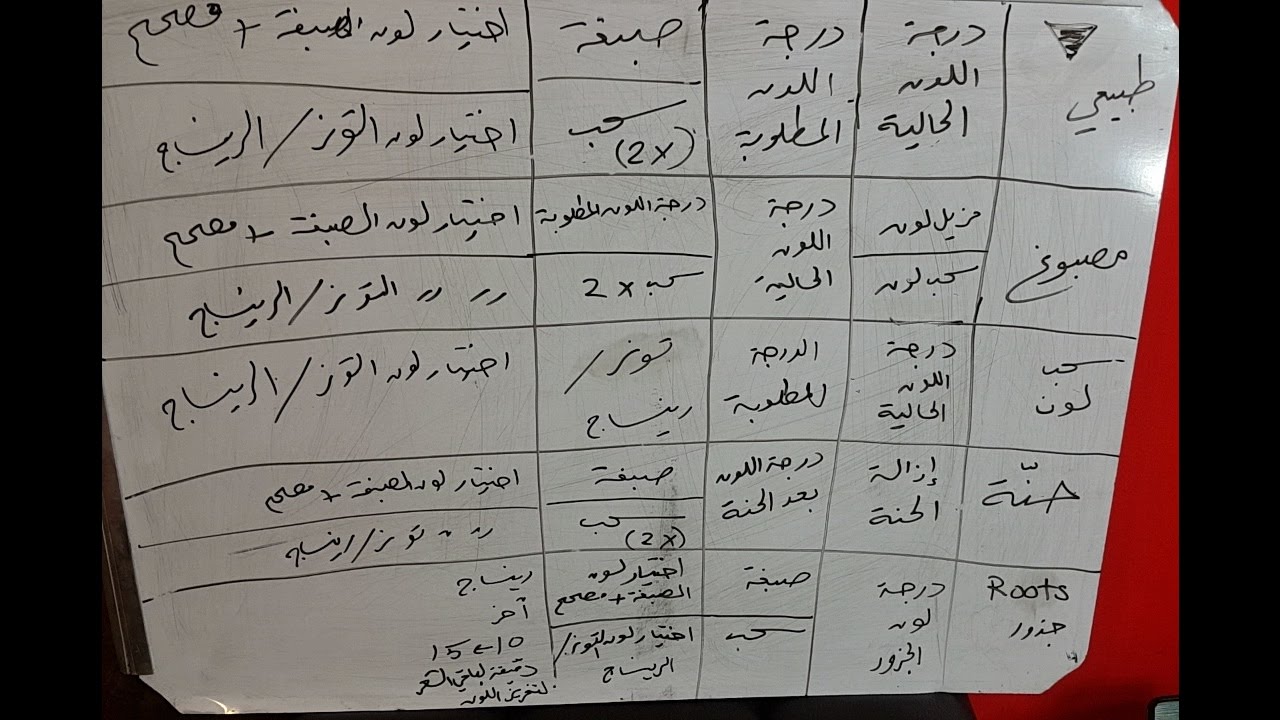 طبيعي
درجة
اللون
الحالية
درجة
اللون
المطلوبة
صبغة
اختيار لون الصبغة + مصحح
سحب
(2x)
اختيار لون التونر / الرينساج
مصبوغ
مزيل لون
سحب لون
درجة
اللون
الحالية
درجة اللون المطلوبة
اختيار لون الصبغة + مصحح
سحب x 2
〃 〃 التونر / الرينساج
سحب
لون
درجة
اللون
الحالية
الدرجة
المطلوبة
تونر /
رينساج
اختيار لون التونر / الرينساج
حنّة
إزالة
الحنة
درجة اللون
بعد الحنة
صبغة
اختيار لون الصبغة + مصحح
سحب
(2x)
〃 〃 تونر / رينساج
Roots
جذور
درجة
لون
الجزور
صبغة
اختيار لون
الصبغة + مصحح
سحب
اختيار لون التونر /
الريناج
ريناج
آخر
10 ← 15
دقيقة لباقي الشعر
لتفريش اللون